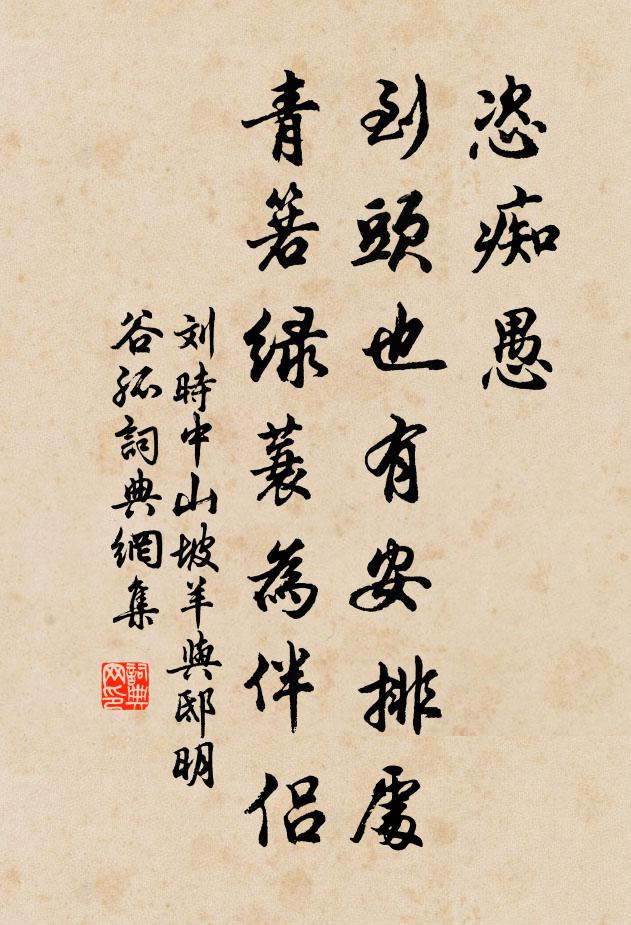 恣痴愚
到頭也有安排處
青箬绿蓑為伴侣
刘時中山坡羊與邸明
谷孤詞典網集
詞典网印